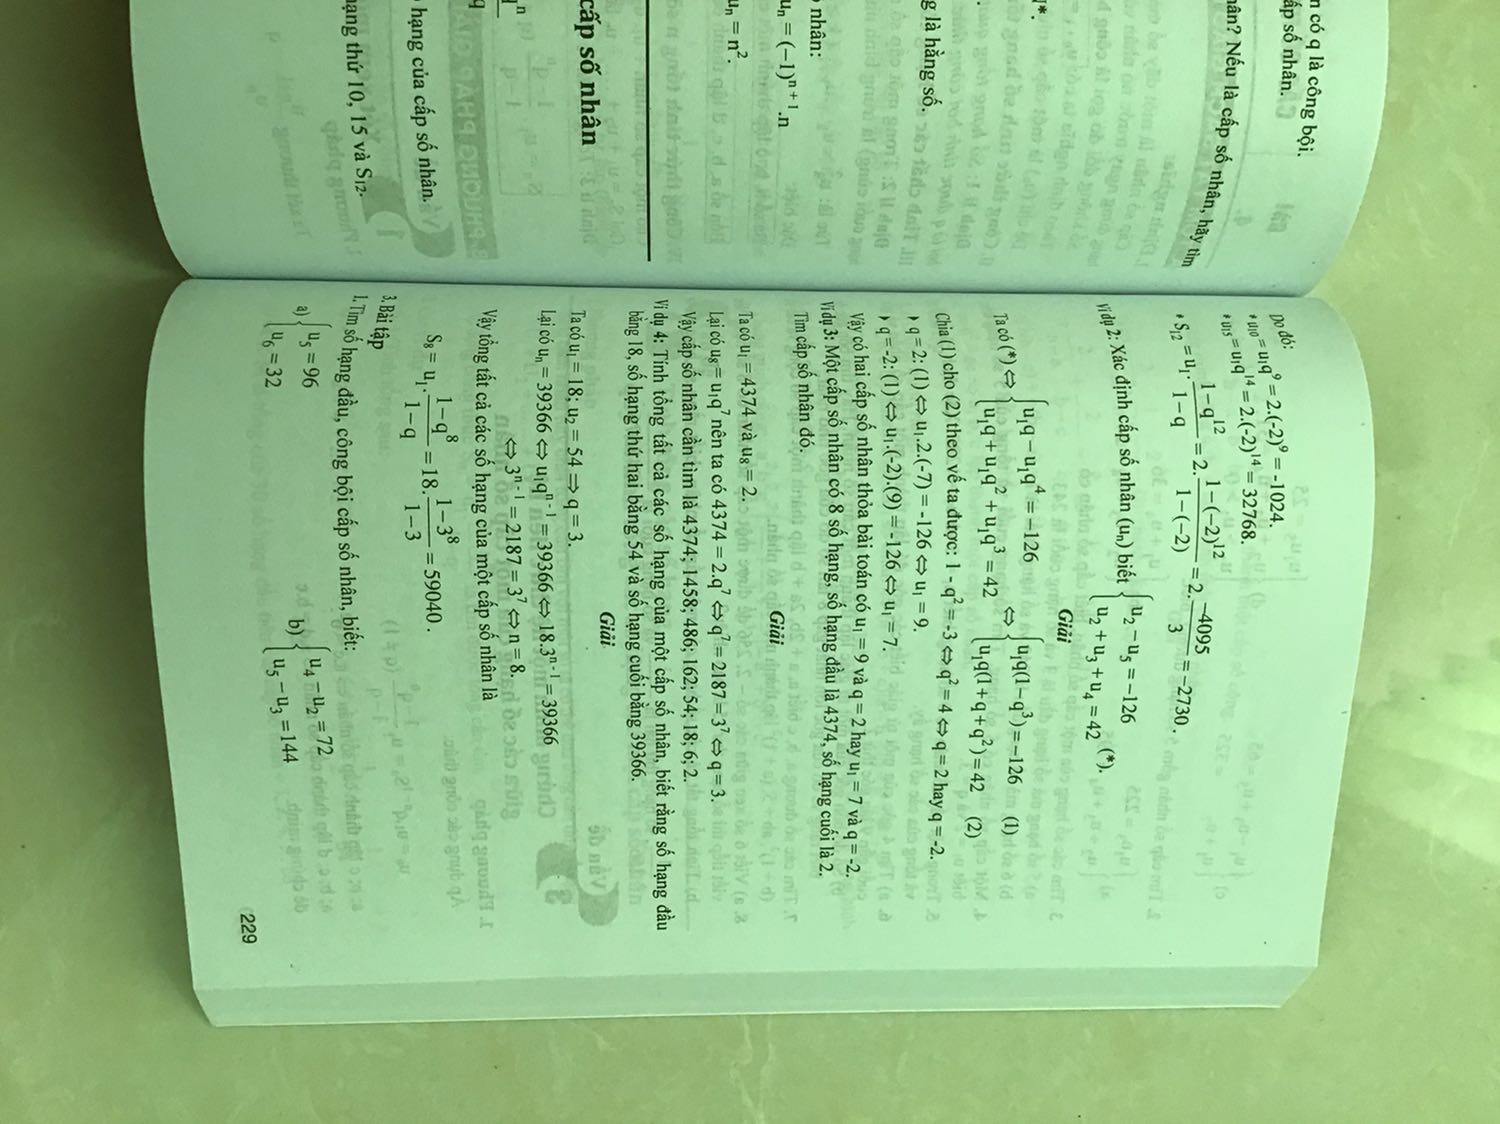 n có q là công bội.
ấp số nhân.
hân? Nếu là cấp số nhân, hãy tìm
g là hằng số.
nhân:
uₙ = (−1)ⁿ⁺¹.n
uₙ = n².
cấp số nhân
hạng của cấp số nhân.
hạng thứ 10, 15 và S₁₂.
Do đó:
* u₁₀ = u₁q⁹ = 2.(-2)⁹ = -1024.
* u₁₅ = u₁q¹⁴ = 2.(-2)¹⁴ = 32768.
* S₁₂ = u₁.(1−q¹²)/(1−q) = 2.(1−(−2)¹²)/(1−(−2)) = 2.(−4095)/3 = −2730.
Ví dụ 2: Xác định cấp số nhân (uₙ) biết { u₂ − u₅ = −126
u₂ + u₃ + u₄ = 42 (*).
Giải
Ta có (*) ⇔ { u₁q − u₁q⁴ = −126 ⇔ { u₁q(1−q³) = −126 (1)
u₁q + u₁q² + u₁q³ = 42 u₁q(1+q+q²) = 42 (2)
Chia (1) cho (2) theo vế ta được: 1 - q² = -3 ⇔ q² = 4 ⇔ q = 2 hay q = -2.
q = 2: (1) ⇔ u₁.2.(-7) = -126 ⇔ u₁ = 9.
q = -2: (1) ⇔ u₁.(-2).(9) = -126 ⇔ u₁ = 7.
Vậy có hai cấp số nhân thỏa bài toán có u₁ = 9 và q = 2 hay u₁ = 7 và q = -2.
Ví dụ 3: Một cấp số nhân có 8 số hạng, số hạng đầu là 4374, số hạng cuối là 2.
Tìm cấp số nhân đó.
Giải
Ta có u₁ = 4374 và u₈ = 2.
Lại có u₈ = u₁q⁷ nên ta có 4374 = 2.q⁷ ⇔ q⁷ = 2187 = 3⁷ ⇔ q = 3.
Vậy cấp số nhân cần tìm là 4374; 1458; 486; 162; 54; 18; 6; 2.
Ví dụ 4: Tính tổng tất cả các số hạng của một cấp số nhân, biết rằng số hạng đầu
bằng 18, số hạng thứ hai bằng 54 và số hạng cuối bằng 39366.
Giải
Ta có u₁ = 18; u₂ = 54 ⇒ q = 3.
Lại có uₙ = 39366 ⇔ u₁qⁿ⁻¹ = 39366 ⇔ 18.3ⁿ⁻¹ = 39366
⇔ 3ⁿ⁻¹ = 2187 = 3⁷ ⇔ n = 8.
Vậy tổng tất cả các số hạng của một cấp số nhân là
S₈ = u₁.(1−q⁸)/(1−q) = 18.(1−3⁸)/(1−3) = 59040.
3. Bài tập
1. Tìm số hạng đầu, công bội cấp số nhân, biết:
a) { u₅ = 96 b) { u₄ − u₂ = 72
u₆ = 32 u₅ − u₃ = 144
229